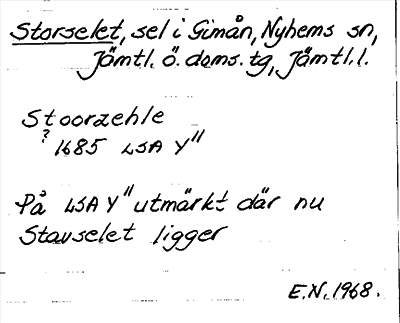 Storselet, sel i Gimån, Nyhems sn,
Jämtl. ö. doms. tg, Jämtl. l.
Stoorzehle
? 1685 LSA Y"
På LSA Y" utmärkt där nu
Stavselet ligger
E.N. 1968.